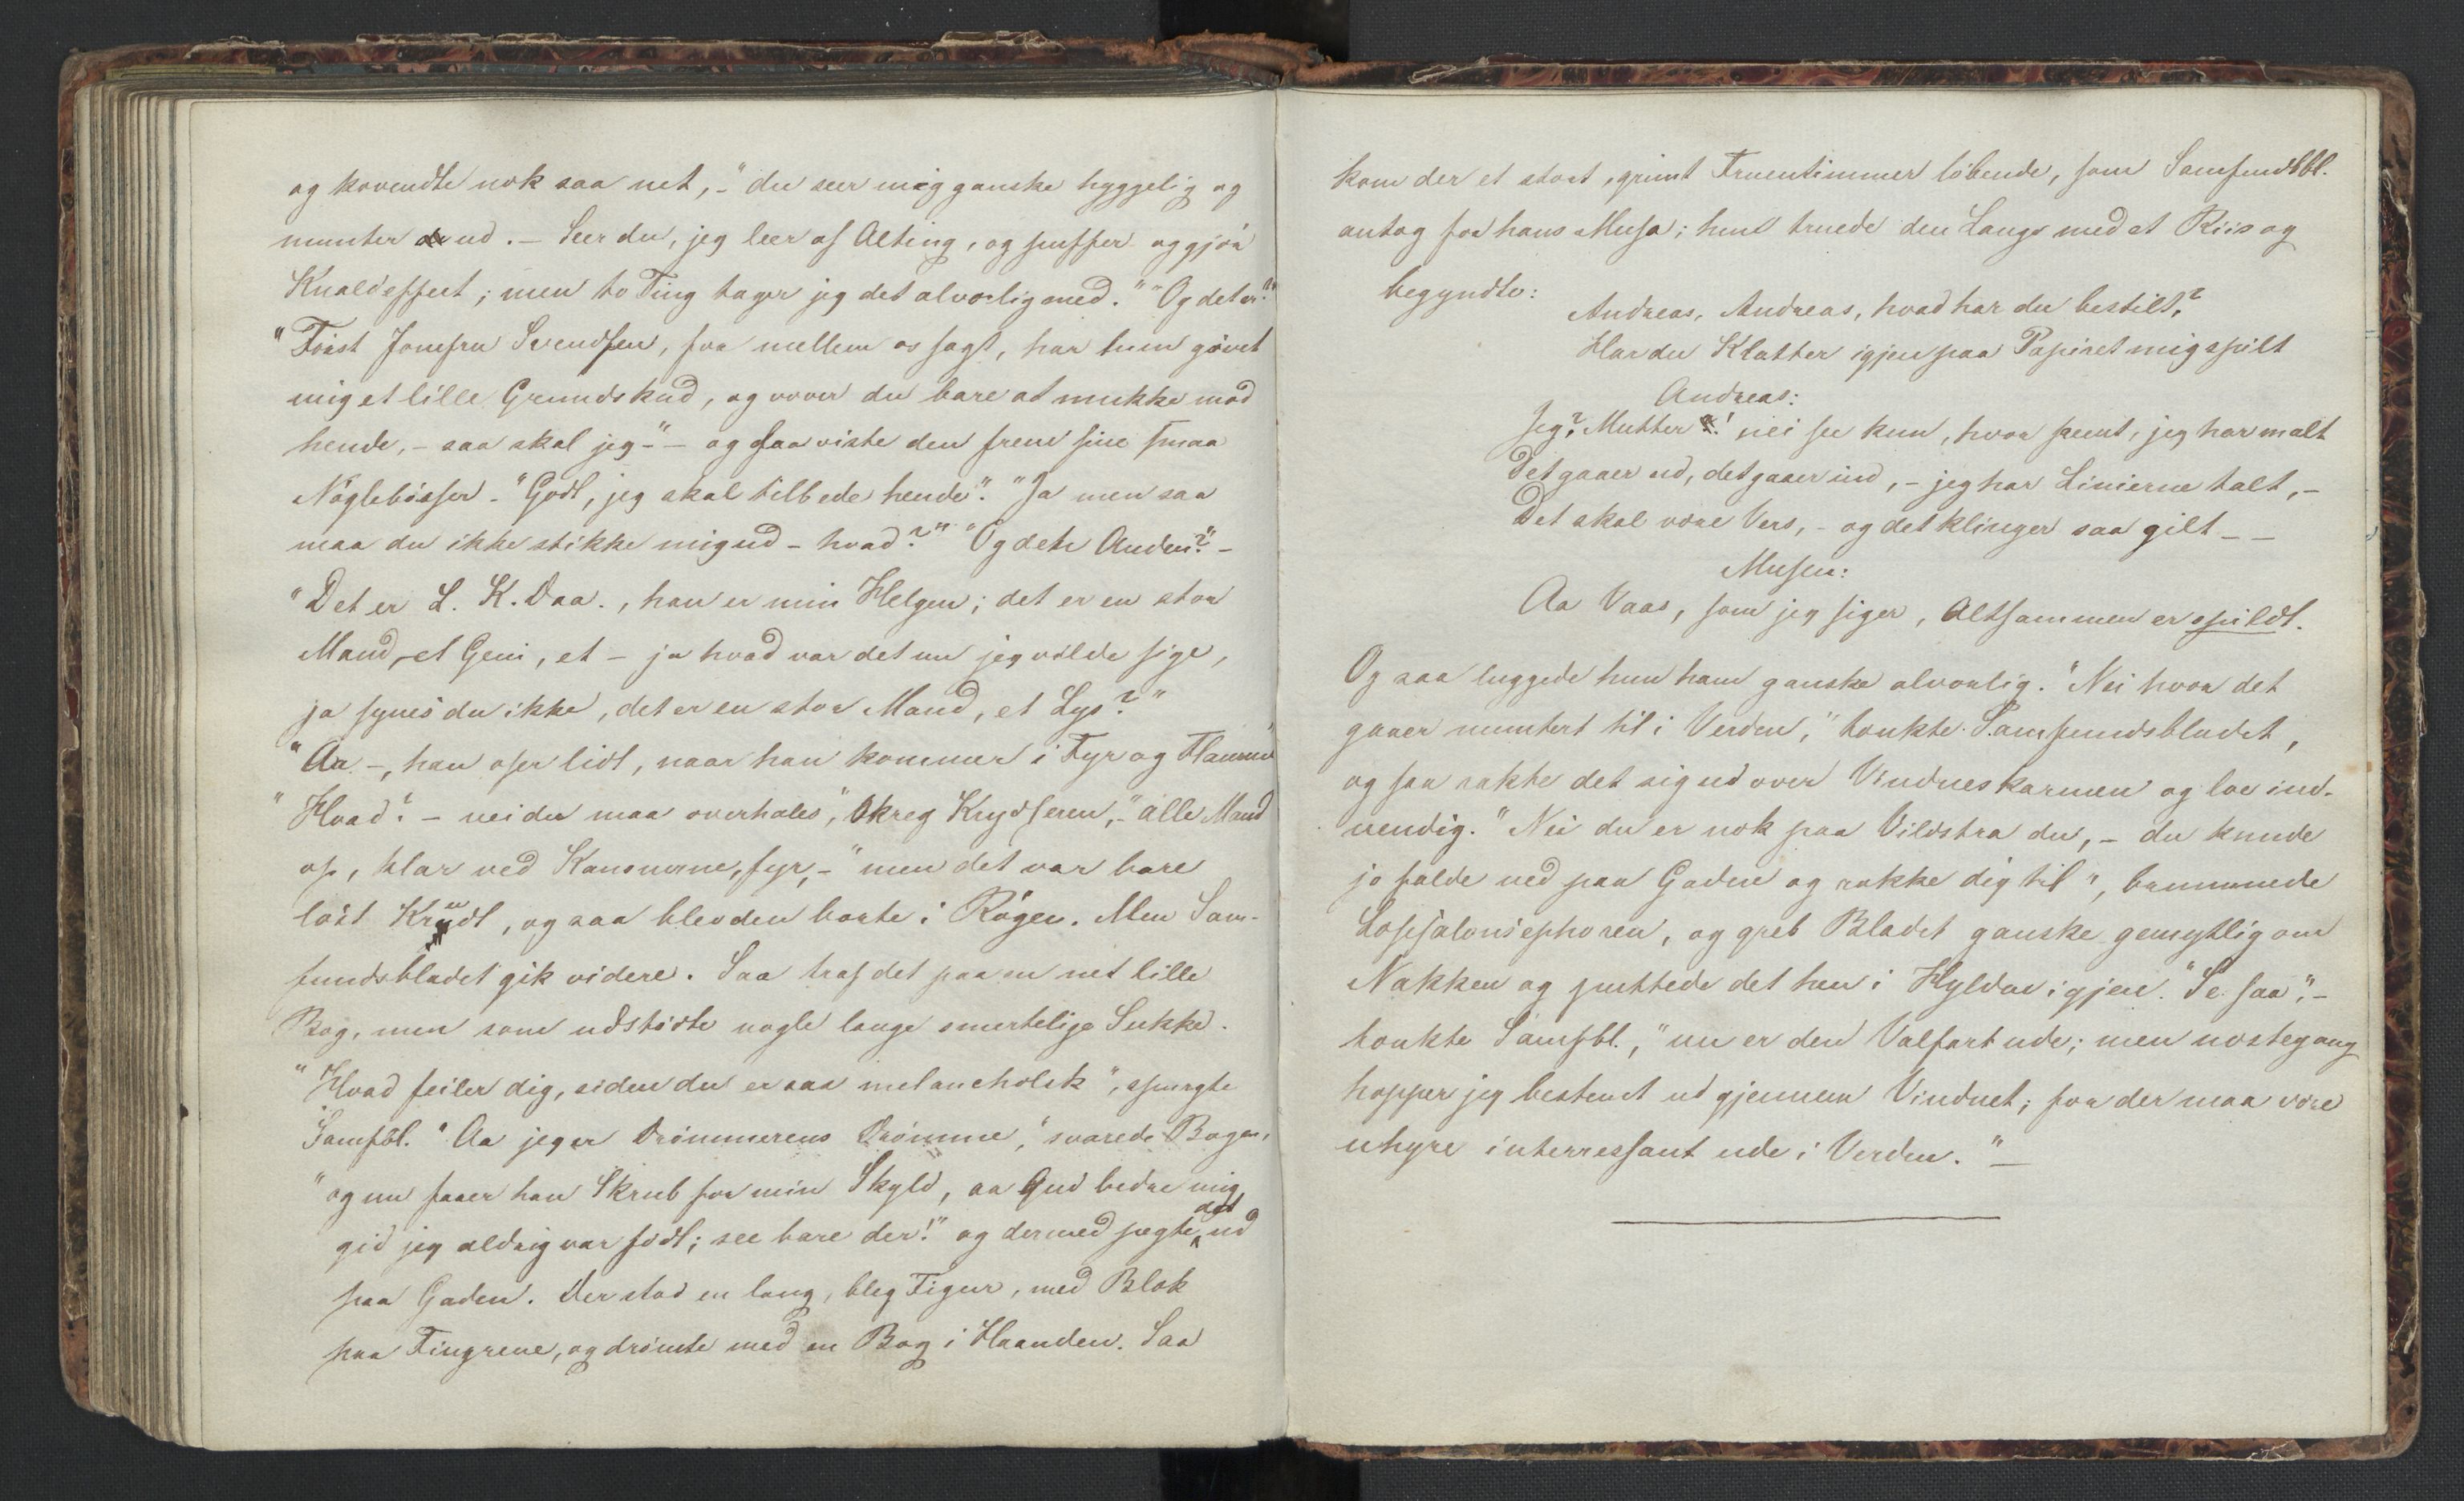 og kovendte nok saa net, - "du seer mig ganske hyggelig og
munter ud. - Seer du, jeg leer af Alting, og puffer og gjör
Knaldeffect; men to Ting tager jeg det alvorlig med." "Og det er?"
"Först Jomfru Svendsen, for mellem os sagt, har hun givet
mig et lille Grundskud, og vover du bare at mukke mod
hende, - saa skal jeg -" - og saa viste den frem sine smaa
Nöglebösser - "Godt, jeg skal tilbede hende". "Ja men saa
maa du ikke stikke mig ud - hvad?" "Og dete Anden?" -
"Det er L. K. Daa., han er min Helgen; det er en stor
Mand, et Geni, et - ja hvad var det nu jeg vilde sige,
ja synes du ikke, det er en stor Mand, et Lys?"
"Aa -, han oser lidt, naar han kommer i Fyr og Flamme"
"Hvad? - nei du maa overhales", skreg Krydseren, - "alle Mand
op, klar ved Kanonerne, fyr, -" men det var bare
löst Krudt, og saa blev den borte i Rögen. Men Sam-
fundsbladet gik videre. Saa traf det paa en net lille
Bog, men som udstödte nogle lange smertelige Sukke.
"Hvad feiler dig, siden du er saa melancholsk", spurgte
Samfbl. "Aa jeg er Drömmerens Drömme," svarede Bogen,
"og nu faaer han Skrub for min Skyld, aa Gud bedre mig,
gid jeg aldrig var födt; see bare der!" og dermed pegte det ud
paa Gaden. Der stod en lang, bleg Figur, med Blæk
paa Fingrene, og drömte med en Bog i Haanden. Saa
kom der et stort, grimt Fruentimmer löbende, som Samfundsbl.
antog for hans Muse; hun truede den Lange med et Riis og
begyndte:
Andreas, Andreas, hvad har du bestilt?
Har du Klatter igjen paa Papiret mig spilt
Andreas:
Jeg? Mutter! nei se kun, hvor pent, jeg har malt
Det gaaer ud, det gaaer ind, - jeg har Linierne talt, -
Det skal være Vers, - og det klinger saa gilt - -
Musen:
Aa Vaas, som jeg siger, Altsammen er spildt.
Og saa luggede hun ham ganske alvorlig. "Nei hvor det
gaaer muntert til i Verden," tænkte Samfundsbladet,
og saa rakte det sig ud over Vindueskarmen og loe ind-
vendig. "Nei du er nok paa Vildstraa du, - du kunde
jo falde ned paa Gaden og rakke dig til", brummede
Losjalonsephoren, og greb Bladet ganske gemytlig om
Nakken og puttede det hen i Hylden igjen. "Se saa", -
tænkte Samfbl., "nu er den Valfart ude; men næstegang
hopper jeg bestemt ud gjennem Vinduet; for der maa være
uhyre interressant ude i Verden." -